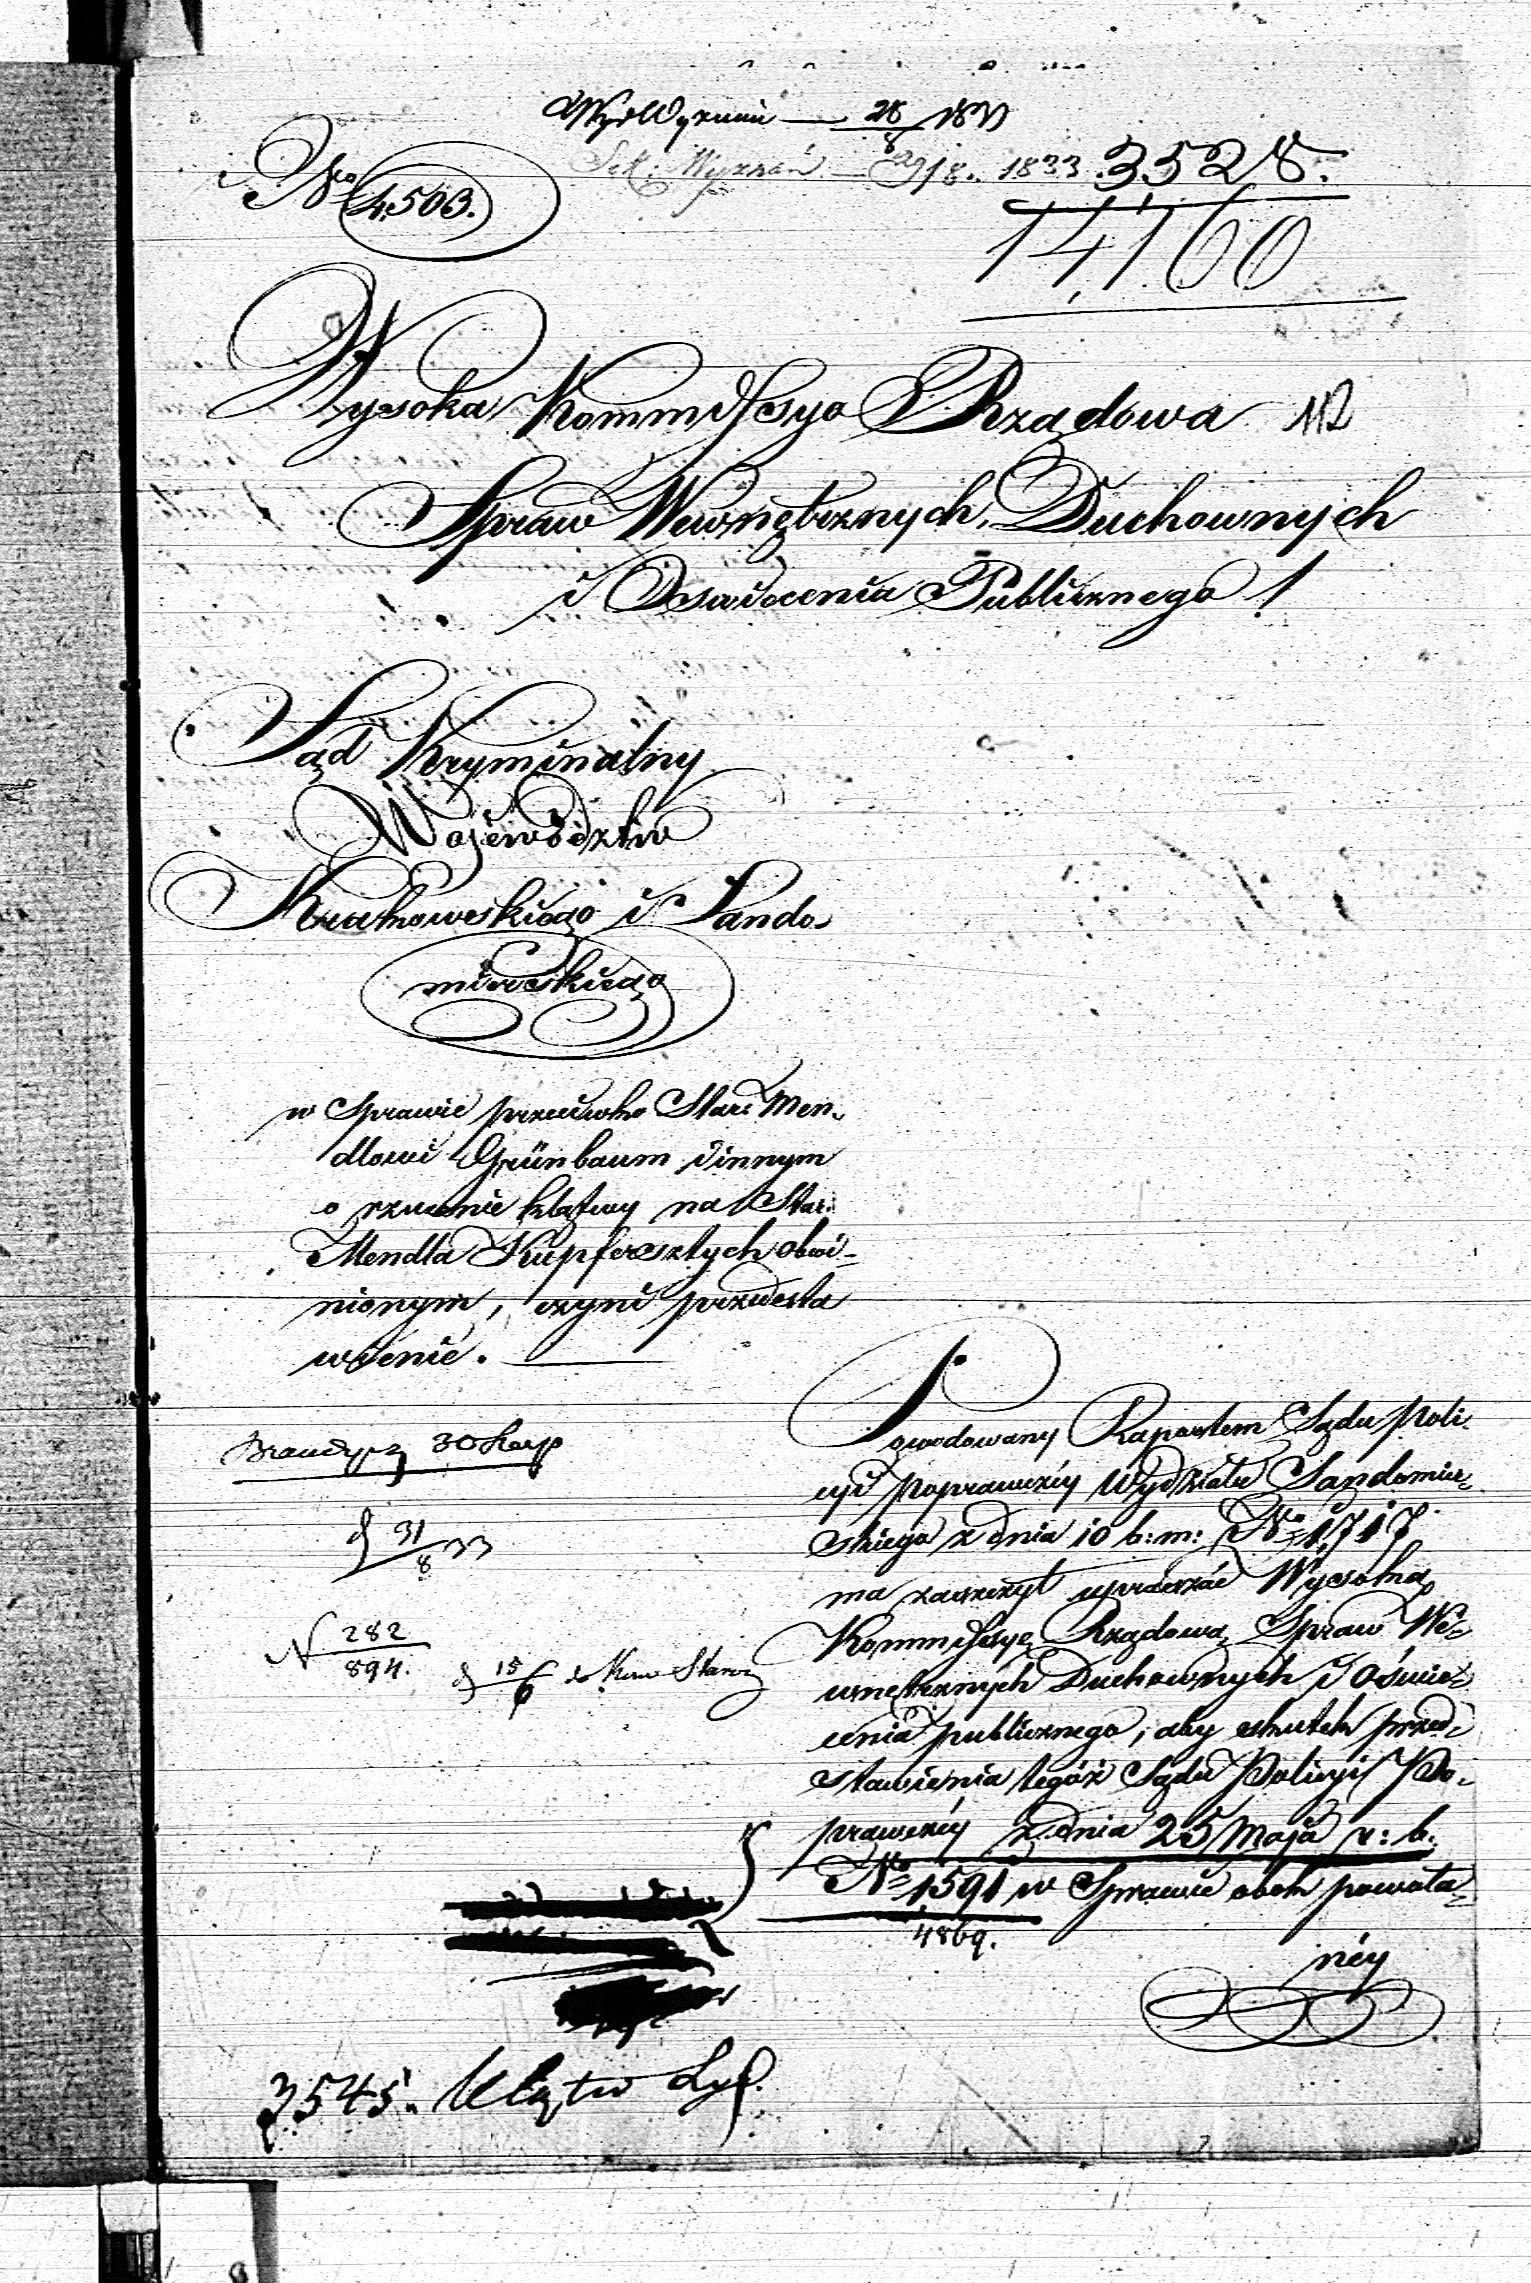 Wyd Wyznań — 28/8 1833
Sek: Wyznań — 1833. 3528.
No 4,503.
14,160
Wysoka Kommissya Rządowa 112
Spraw Wewnętrznych, Duchownych
i Oswiecenia Publicznego!
Sąd Kryminalny
Województw
Krakowskiego i Sando-
mirskiego
w Sprawie przeciwko Star: Men-
dlowi Grünbaum i innym
o rzucenie klątwy na Star:
Mendla Kupfersztych obwi-
nionym, czyni przedsta
wienie.
Powodowany Raportem Sądu Poli-
cyi Poprawczéy Wydziału Sandomir-
skiego z dnia 10 b: m: No 1,717
ma zaszczyt upraszać Wysoką
Kommissyę Rządową Spraw We-
wnętrznych Duchownych i Oświe-
cenia publicznego, aby skutek przed-
stawienia tegoż Sądu Policyi Po-
prawczéy z dnia 25 Maja r: b:
No 1591 w Sprawie obok powoła-
4869.
néy
30
31/8 33
N 282/894.
15/6
3545. Klątw